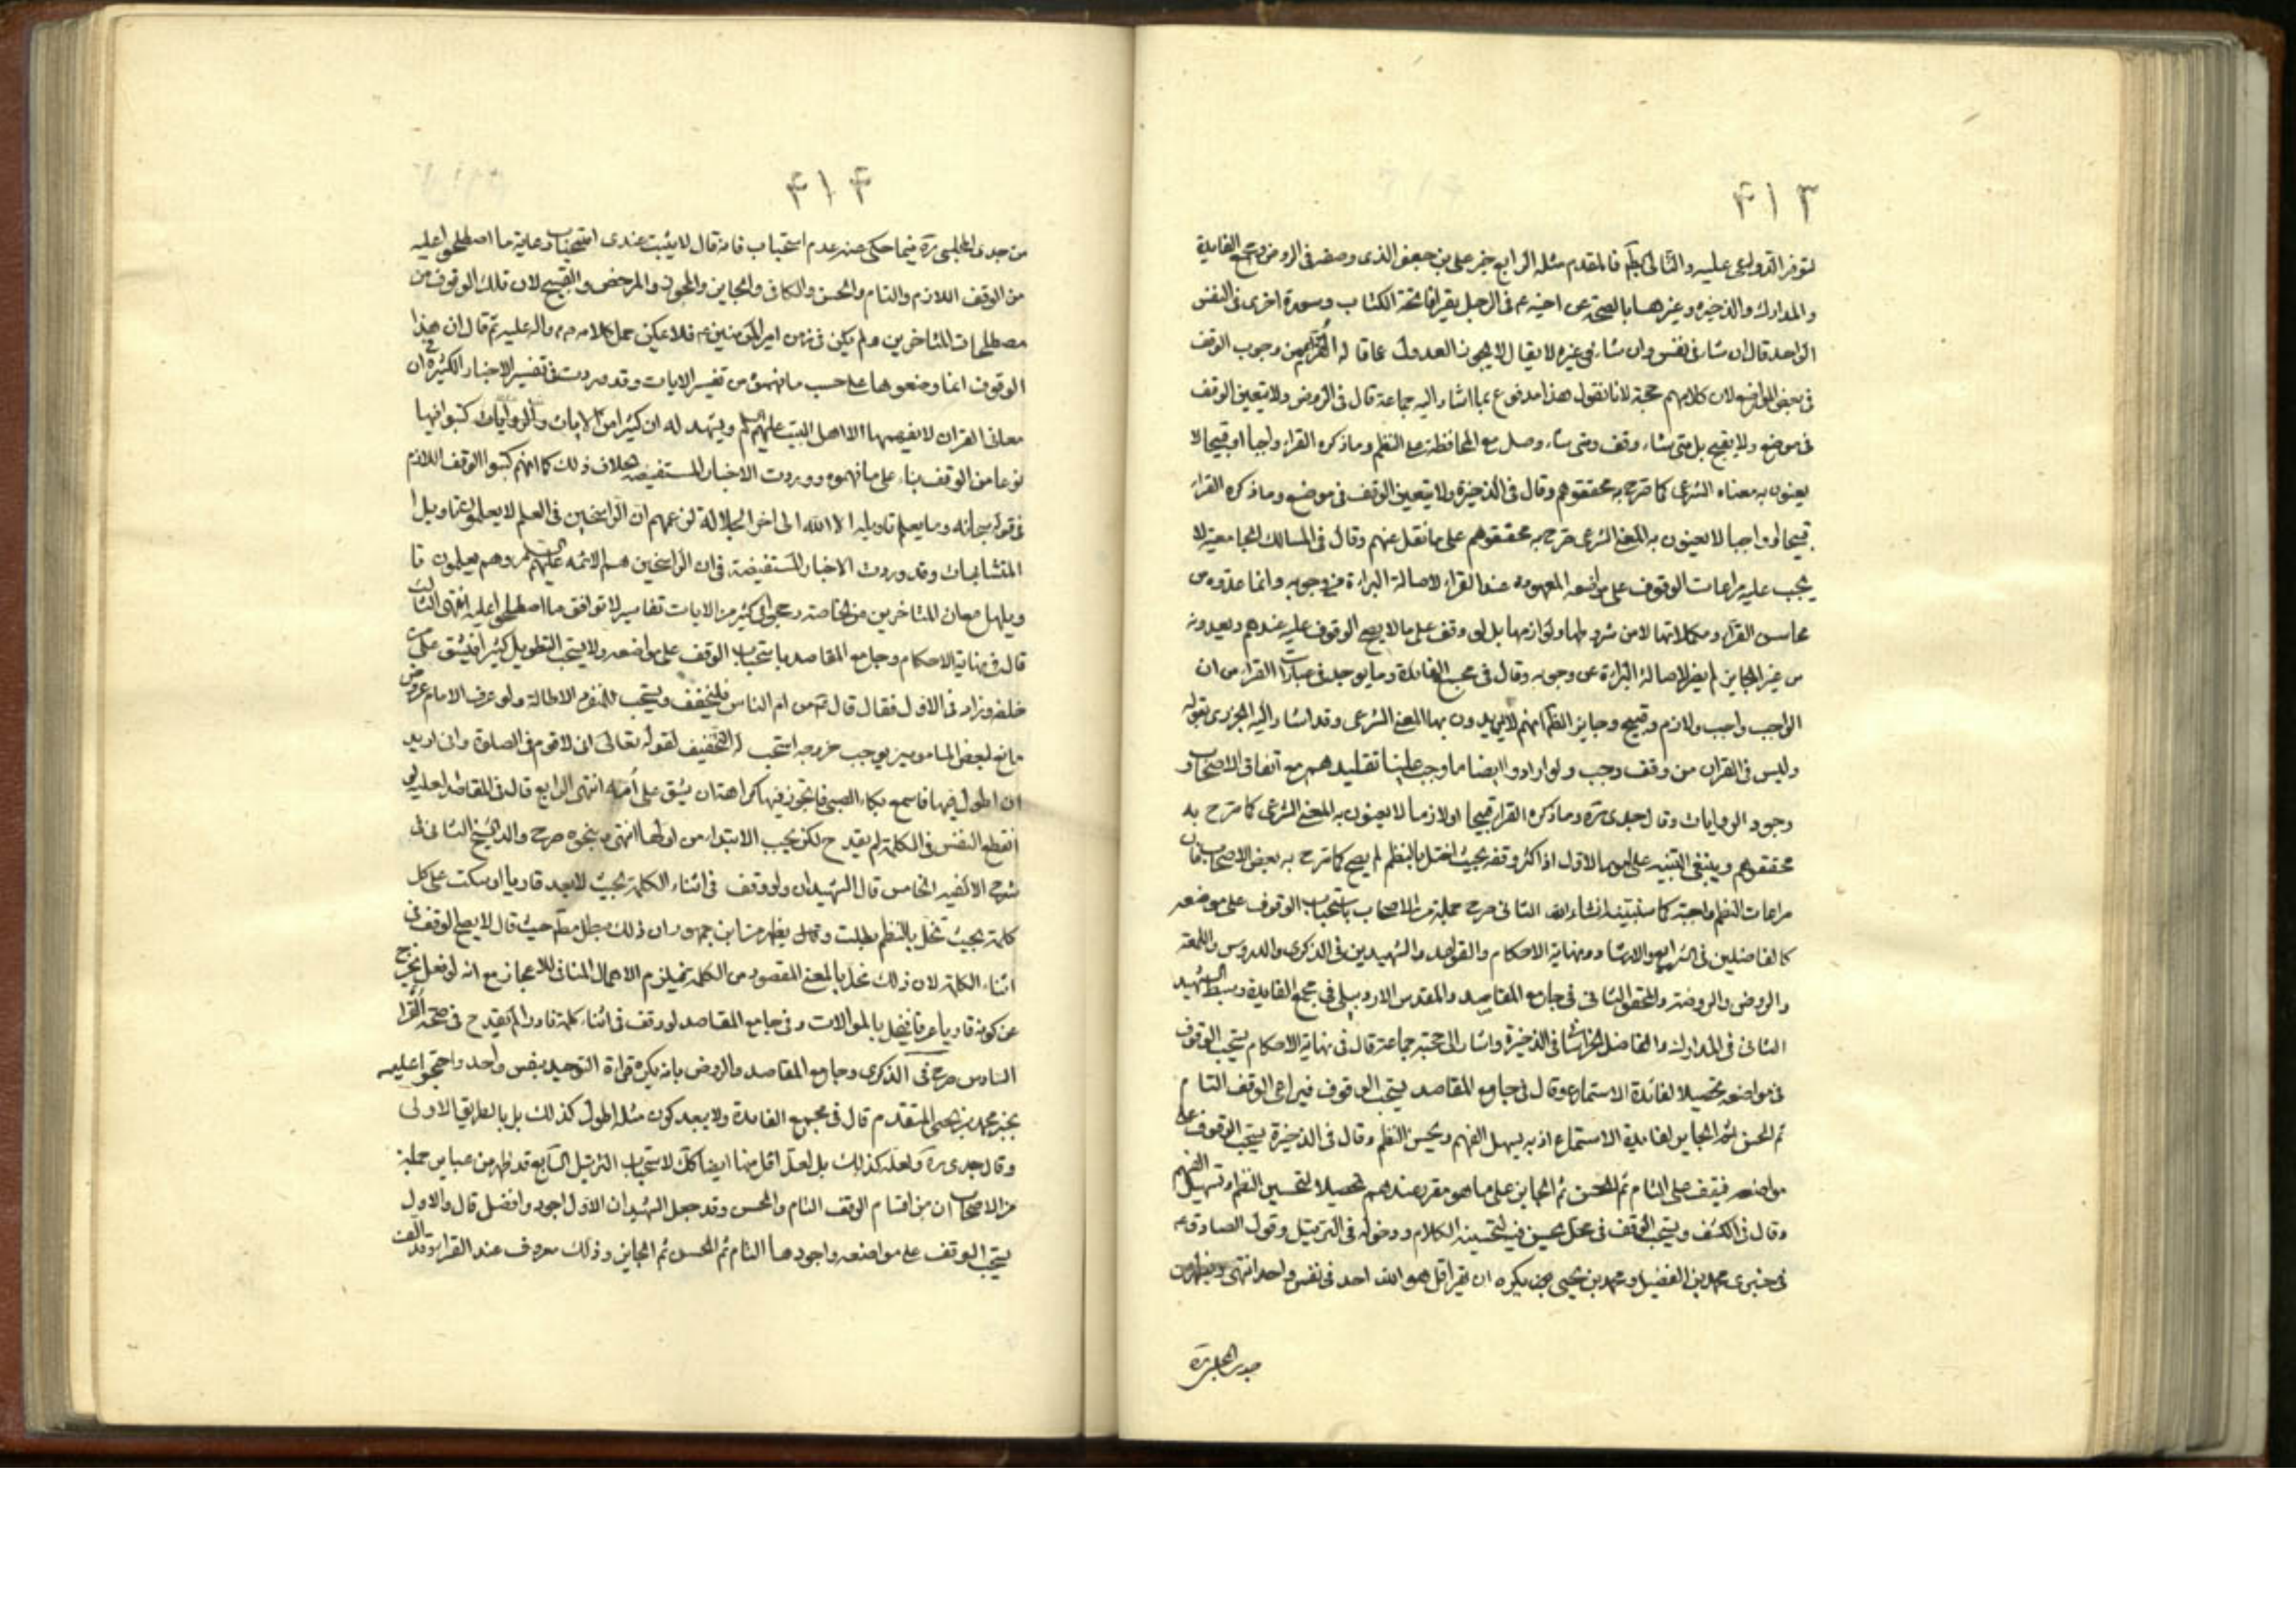 ۴۱۳
لتوفر الدواعى عليه والتالى بكم فالمقدم مثله الرابع خبر على بن جعفر الذى وصفه فى الروض ومجمع الفايدة
والمدارك والذخيره وغيرها بالصحة عن اخيه ع فى الرجل يقرا فاتحة الكتاب وسورة اخرى فى النفس
الواحد قال ان شاء فى نفس وان شاء فى غيره لا يقال لا يجوز العدول عما قاله من وجوب الوقف
فى بعض المواضع لان كلامهم حجة لانا نقول هذا مدفوع بما اشار اليه جماعة قال فى الروض ولا يتعين الوقف
فى موضع ولا يقبح بل متى شاء وقف ومتى شاء وصل مع المحافظة على النظم وما ذكره القراء واجبا او قبيحا لا
يعنون به معناه الشرعى كما صرح به محققوهم وقال فى الذخيرة ولا يتعين الوقف فى موضع وما ذكره القراء
قبيحا او واجبا لا يعنون به المعنى الشرعى صرح به محققوهم على ما نقل عنهم وقال فى المسالك الجامعية لا
يجب عليه مراعات الوقوف على مواضعه المعهوده عند القراء لاصالة البراءة من وجوبه وانما عدوه من
محاسن القراءة ومكملاتها لا من شروطها ولوازمها بل لو وقف على ما لا يصح الوقوف عليه عندهم ويعدونه
من غير الجايز لم يضر لاصالة البراءة عن وجوبه وقال فى مجمع الفائدة وما يوجد فى عبارات القراء من ان
الواجب واجب ولازم وقبيح وجايز الظ انهم لا يريدون بها المعنى الشرعى وقد اشار اليه الجزرى بقوله
وليس فى القران من وقف وجب ولو ارادوا ايضا ما وجب علينا تقليدهم مع اتفاق الاصحاب و
وجود الروايات وقال جدى ره وما ذكره القراء قبيحا او لازما لا يعنون به المعنى الشرعى كما صرح به
محققوهم وينبغى التنبيه على امور الاول اذا اكثر وقفه بحيث اختل بالنظم لم يصح كما صرح به بعض الاصحاب فان
مراعات النظم واجبة كما سنبينه انشاء الله الثانى صرح جملة من الاصحاب باستحباب الوقوف على موضعه
كالفاضلين فى الشرايع والارشاد ونهاية الاحكام والقواعد والشهيدين فى الذكرى والدروس واللمعة
والروض والروضة والمحقق الثانى فى جامع المقاصد والمقدس الاردبيلى فى مجمع الفايدة وسبط الشهيد
الثانى فى المدارك والفاضل الخراسانى فى الذخيرة واشار الى حجته جماعة قال فى نهاية الاحكام يستحب الوقوف
فى مواضعه تحصيلا لفائدة الاستماع وقال فى جامع المقاصد يستحب الوقوف فيراعى الوقف التام
ثم الحسن ثم الجايز لفايدة الاستماع اذ به يسهل الفهم ويحسن النظم وقال فى الذخيرة يستحب الوقوف على
مواضعه فيقف على التام ثم الحسن ثم الجايز على ما هو مقرر عندهم تحصيلا لتحسين القراءة وتسهيل الفهم
وقال فى الكشف ويستحب الوقف فى محل يحسن فيه لتحسينه الكلام ودخوله فى الترتيل وقول الصادق ع
فى خبرى محمد بن الفضيل ومحمد بن يحيى يكره ان تقرا قل هو الله احد فى نفس واحد انتهى ويظهر من
جدى المجلسى ره
۴۱۴
من جدى المجلسى ره فيما حكى عنه عدم استحباب فانه قال لا يثبت عندى استحباب رعاية ما اصطلحوا عليه
من الوقف اللازم والتام والحسن والكافى والجايز والمجوز والمرخص والقبيح لان تلك الوقوف من
مصطلحات المتاخرين ولم يكن فى زمن امير المؤمنين ع فلا يمكن حمل كلامه عليه ثم قال ان هذا
الوقوف انما وضعوها على حسب ما فهموه من تفسير الايات وقد وردت فى تفسير الاخبار الكثيرة فى ان
معانى القران لا يفهمها الا اهل البيت عليهم السلم ويشهد له ان كثيرا من الايات والروايات كتبوا فيها
نوعا من الوقف بناء على ما فهموه ووردت الاخبار المستفيضه بخلاف ذلك كما انهم كتبوا الوقف اللازم
فى قوله سبحانه وما يعلم تاويله الا الله الى اخر الجلالة لزعمهم ان الراسخين فى العلم لا يعلمون تاويل
المتشابهات وقد وردت الاخبار المستفيضة فى ان الراسخين هم الائمه عليهم السلم وهم يعلمون تا
ويلها مع ان المتاخرين من الخاصة رجحوا فى كثير من الايات تفاسير لا توافق ما اصطلحوا عليه انتهى الثالث
قال فى نهاية الاحكام وجامع المقاصد باستحباب الوقف على مواضعه ولا يستحب التطويل كثيرا فيشق على من
خلفه وزاد فى الاول فقال قال ع من ام الناس فليخفف ويستحب للمنفرد الاطالة ولو عرف الامام عروض
مانع لبعض المامومين يوجب خروجه استحب له التخفيف لقوله تعالى انى لاقوم فى الصلوة وانى اريد
ان اطول فيها فاسمع بكاء الصبى فاتجوز فيها كراهة ان يشق على امه انتهى الرابع قال فى المقاصد العليه لو
انقطع النفس فى الكلمة لم يقدح لكن يجب الابتداء من اولها انتهى وبنحوه صرح والد الشيخ الثانى فى
شرح الالفيه الخامس قال الشهيدان ولو وقف فى اثناء الكلمة بحيث لا يعد قاريا او سكت على كل
كلمة بحيث تخل بالنظم بطلت وقال يظهر من ابن جمهور ان ذلك مبطل مطلقا حيث قال لا يصح الوقف فى
اثناء الكلمة لان ذلك مخل بالمعنى المقصود من الكلمة فيلزم الاهمال المنافى للاعجاز مع انه لو فعل يخرج
عن كونه قاريا عرفا فيخل بالموالات وفى جامع المقاصد لو وقف فى اثناء كلمة نادرا لم يقدح فى صحة القراءة
السادس صرح فى الذكرى وجامع المقاصد والروض بانه يكره قراءة التوحيد بنفس واحد واحتجوا عليه
بخبر محمد بن يحيى المتقدم قال فى مجمع الفايدة ولا يبعد كون مثله اطول كذلك بل بالطريق الاولى
وقال جدى ره ولعله كذلك بل لعل اقل منها ايضا كك لاستحباب الترتيل السابع قد ظهر من عباير جملة
من الاصحاب ان من اقسام الوقف التام والحسن وقد جعل الشهيدان الاول اجود وافضل قال والاول
يستحب الوقف على مواضعه واجودها التام ثم الحسن ثم الجايز وذلك معروف عند القراء